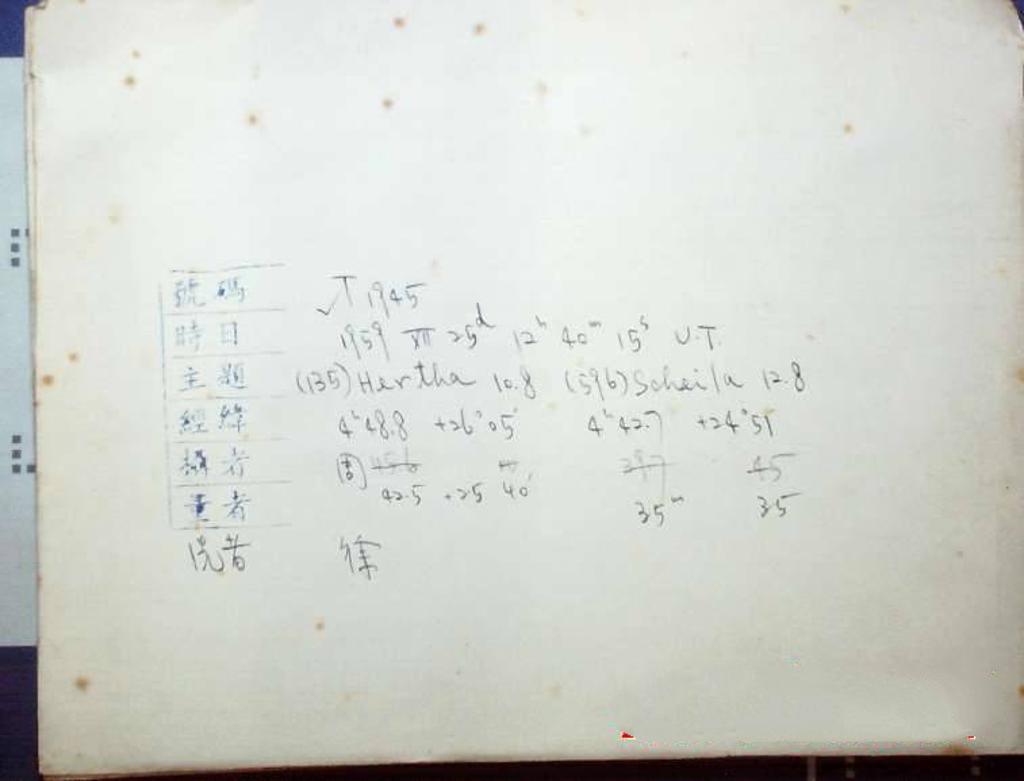 號碼 √T 1945
時日 1959 XII 25d 12h 40m 15s U.T.
主題 (135) Hertha 10.8 (596) Scheila 12.8
經緯 4h48.8 +26°05' 4h42.7 +24°51'
攝者 45
量者 42.5 +25 40' 35m 35
洗者 徐